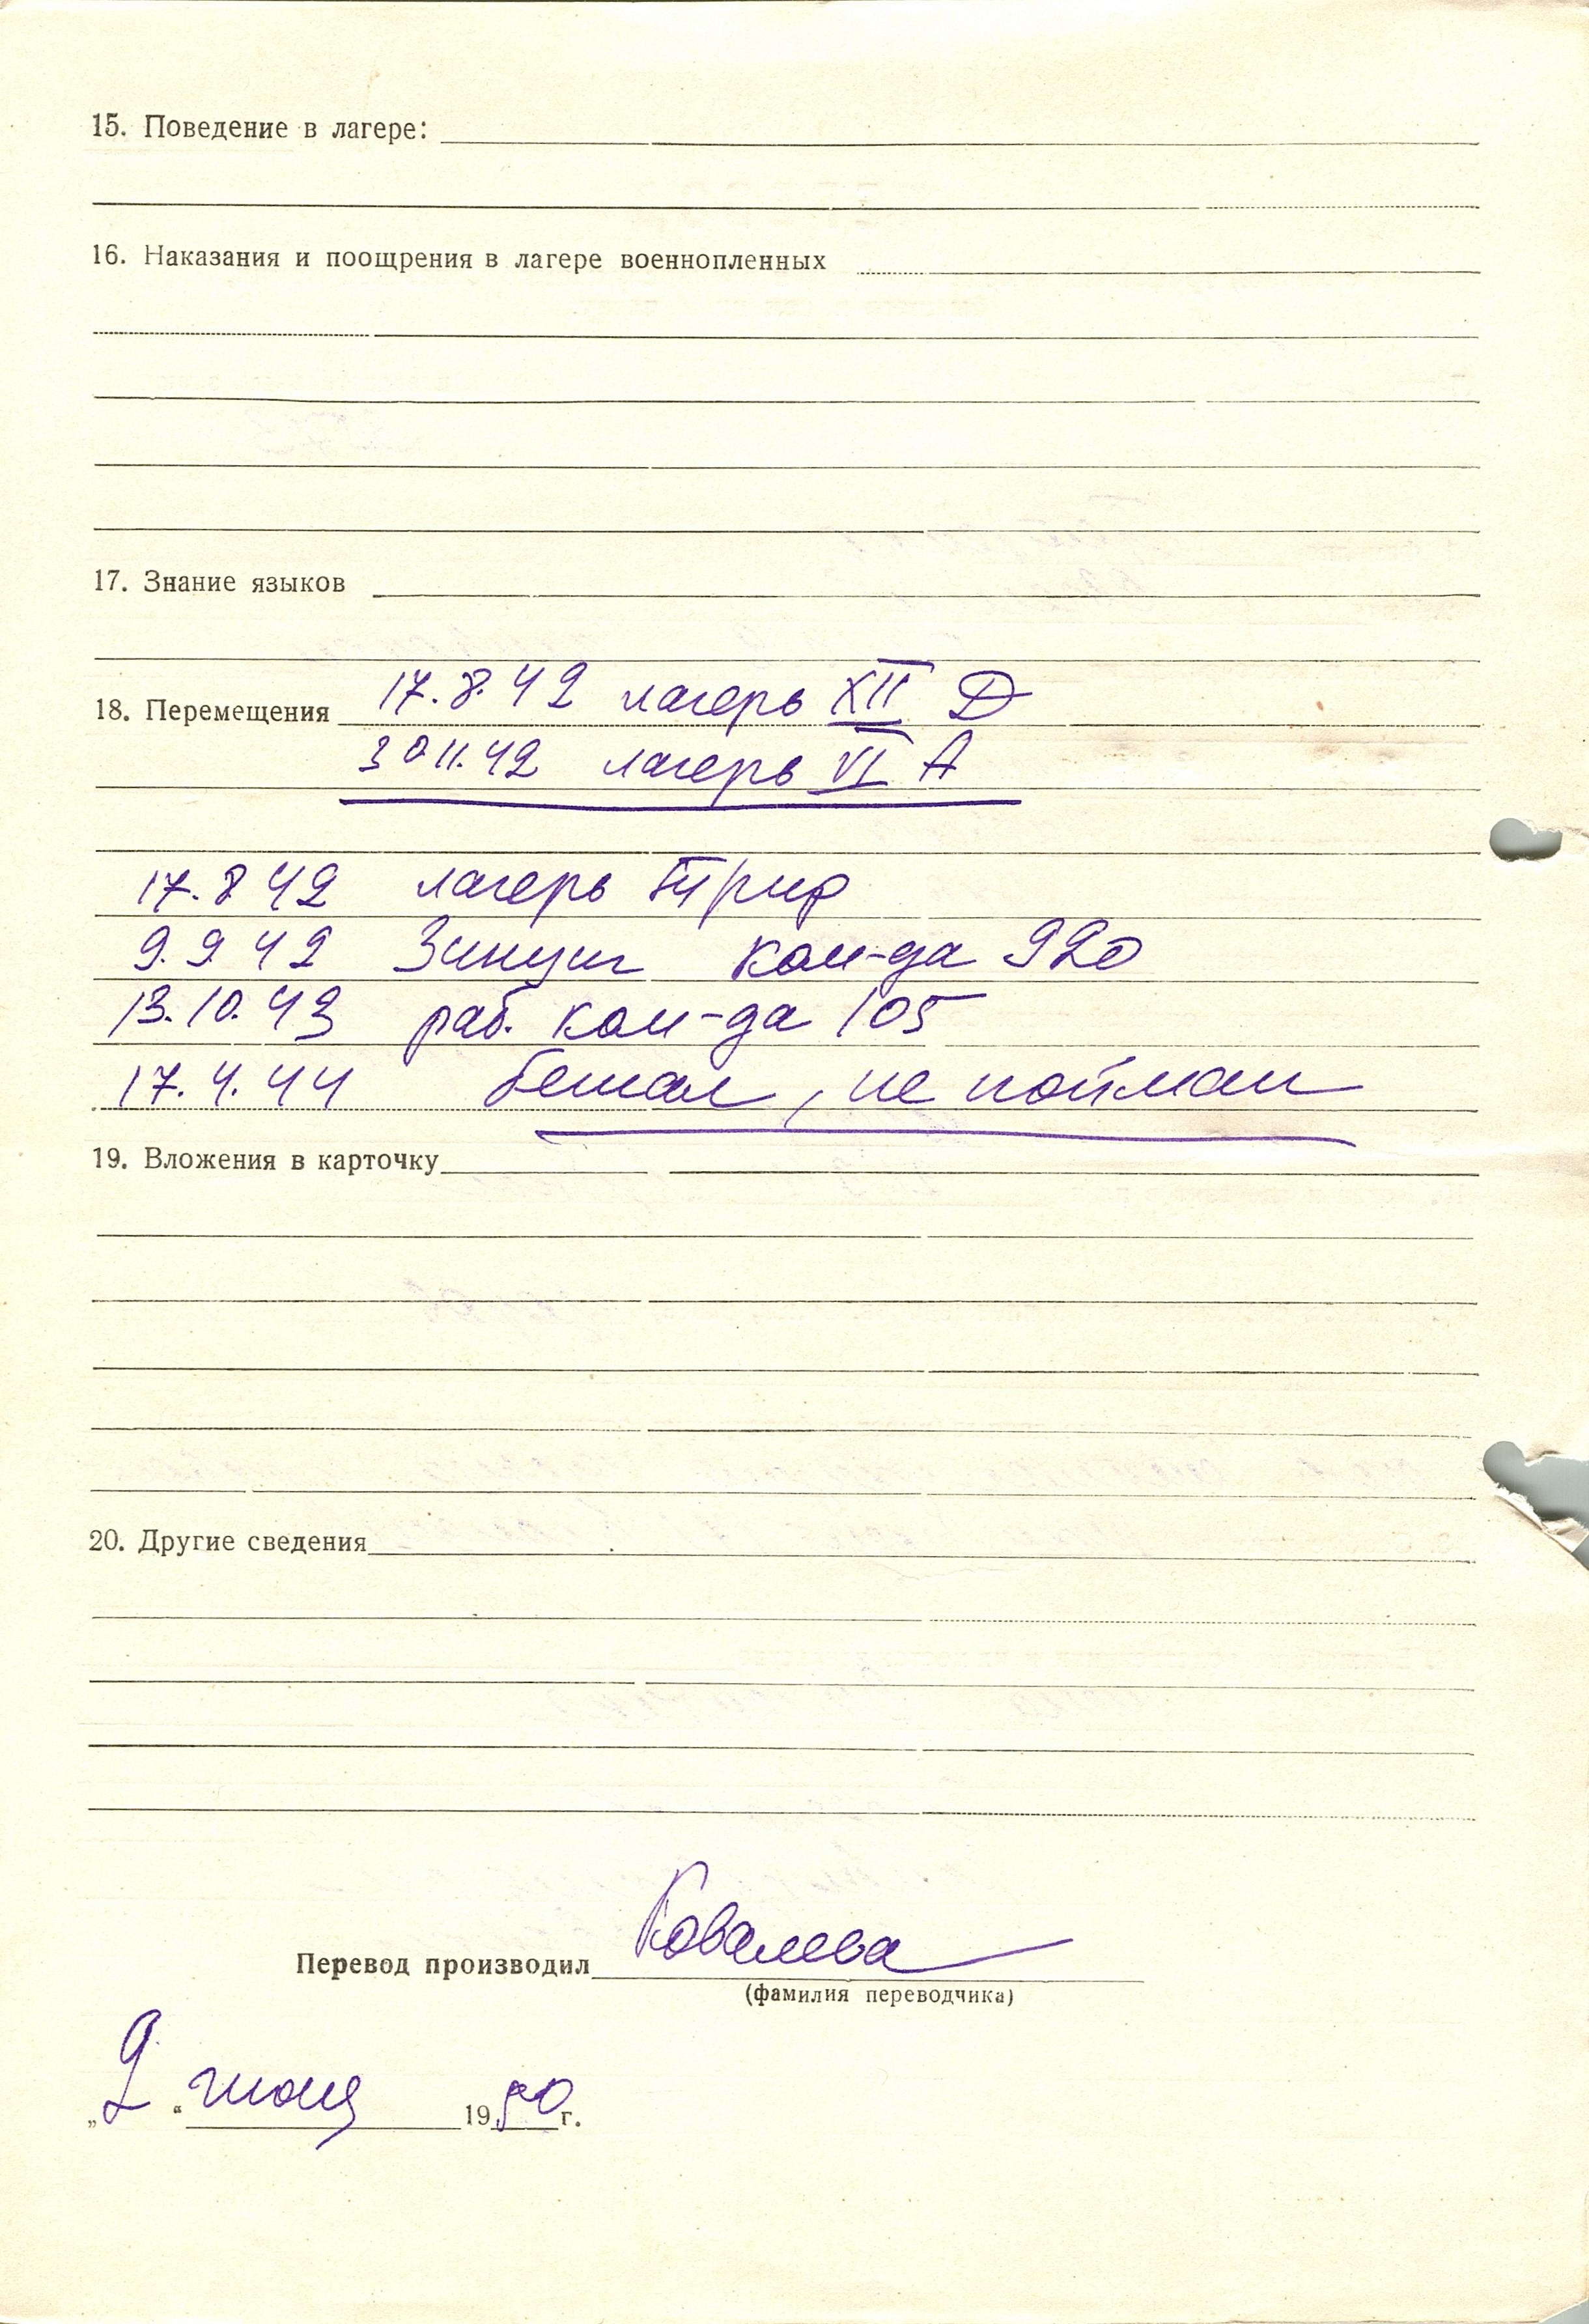 15. Поведение в лагере:
16. Наказания и поощрения в лагере военнопленных
17. Знание языков
18. Перемещения 17.8.42 лагерь XII Д
30 11.42 лагерь VI А
17.8 42 лагерь Трир
9.9 42 ком-да 920
13.10.43 раб. ком-да 105
17.4.44 бежал, не пойман
19. Вложения в карточку
20. Другие сведения
Перевод производил Ковалева
(фамилия переводчика)
„2“ июня 1950 г.